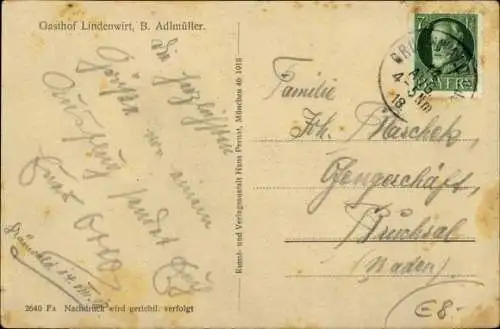 Gasthof Lindenwirt, B. Adlmüller.
Die herzlichsten
Grüße von einem
Ausflug sendet Euch
Euer Otto
2640 Fa Nachdruck wird gerichtl. verfolgt
Kunst- und Verlagsanstalt Hans Pernat, München 46 1918
7
BAYERN
AUG
4-5 Nm
18
Familie
Joh. Maschek,
Ofengeschäft,
Bruchsal
(Baden)
€8.-